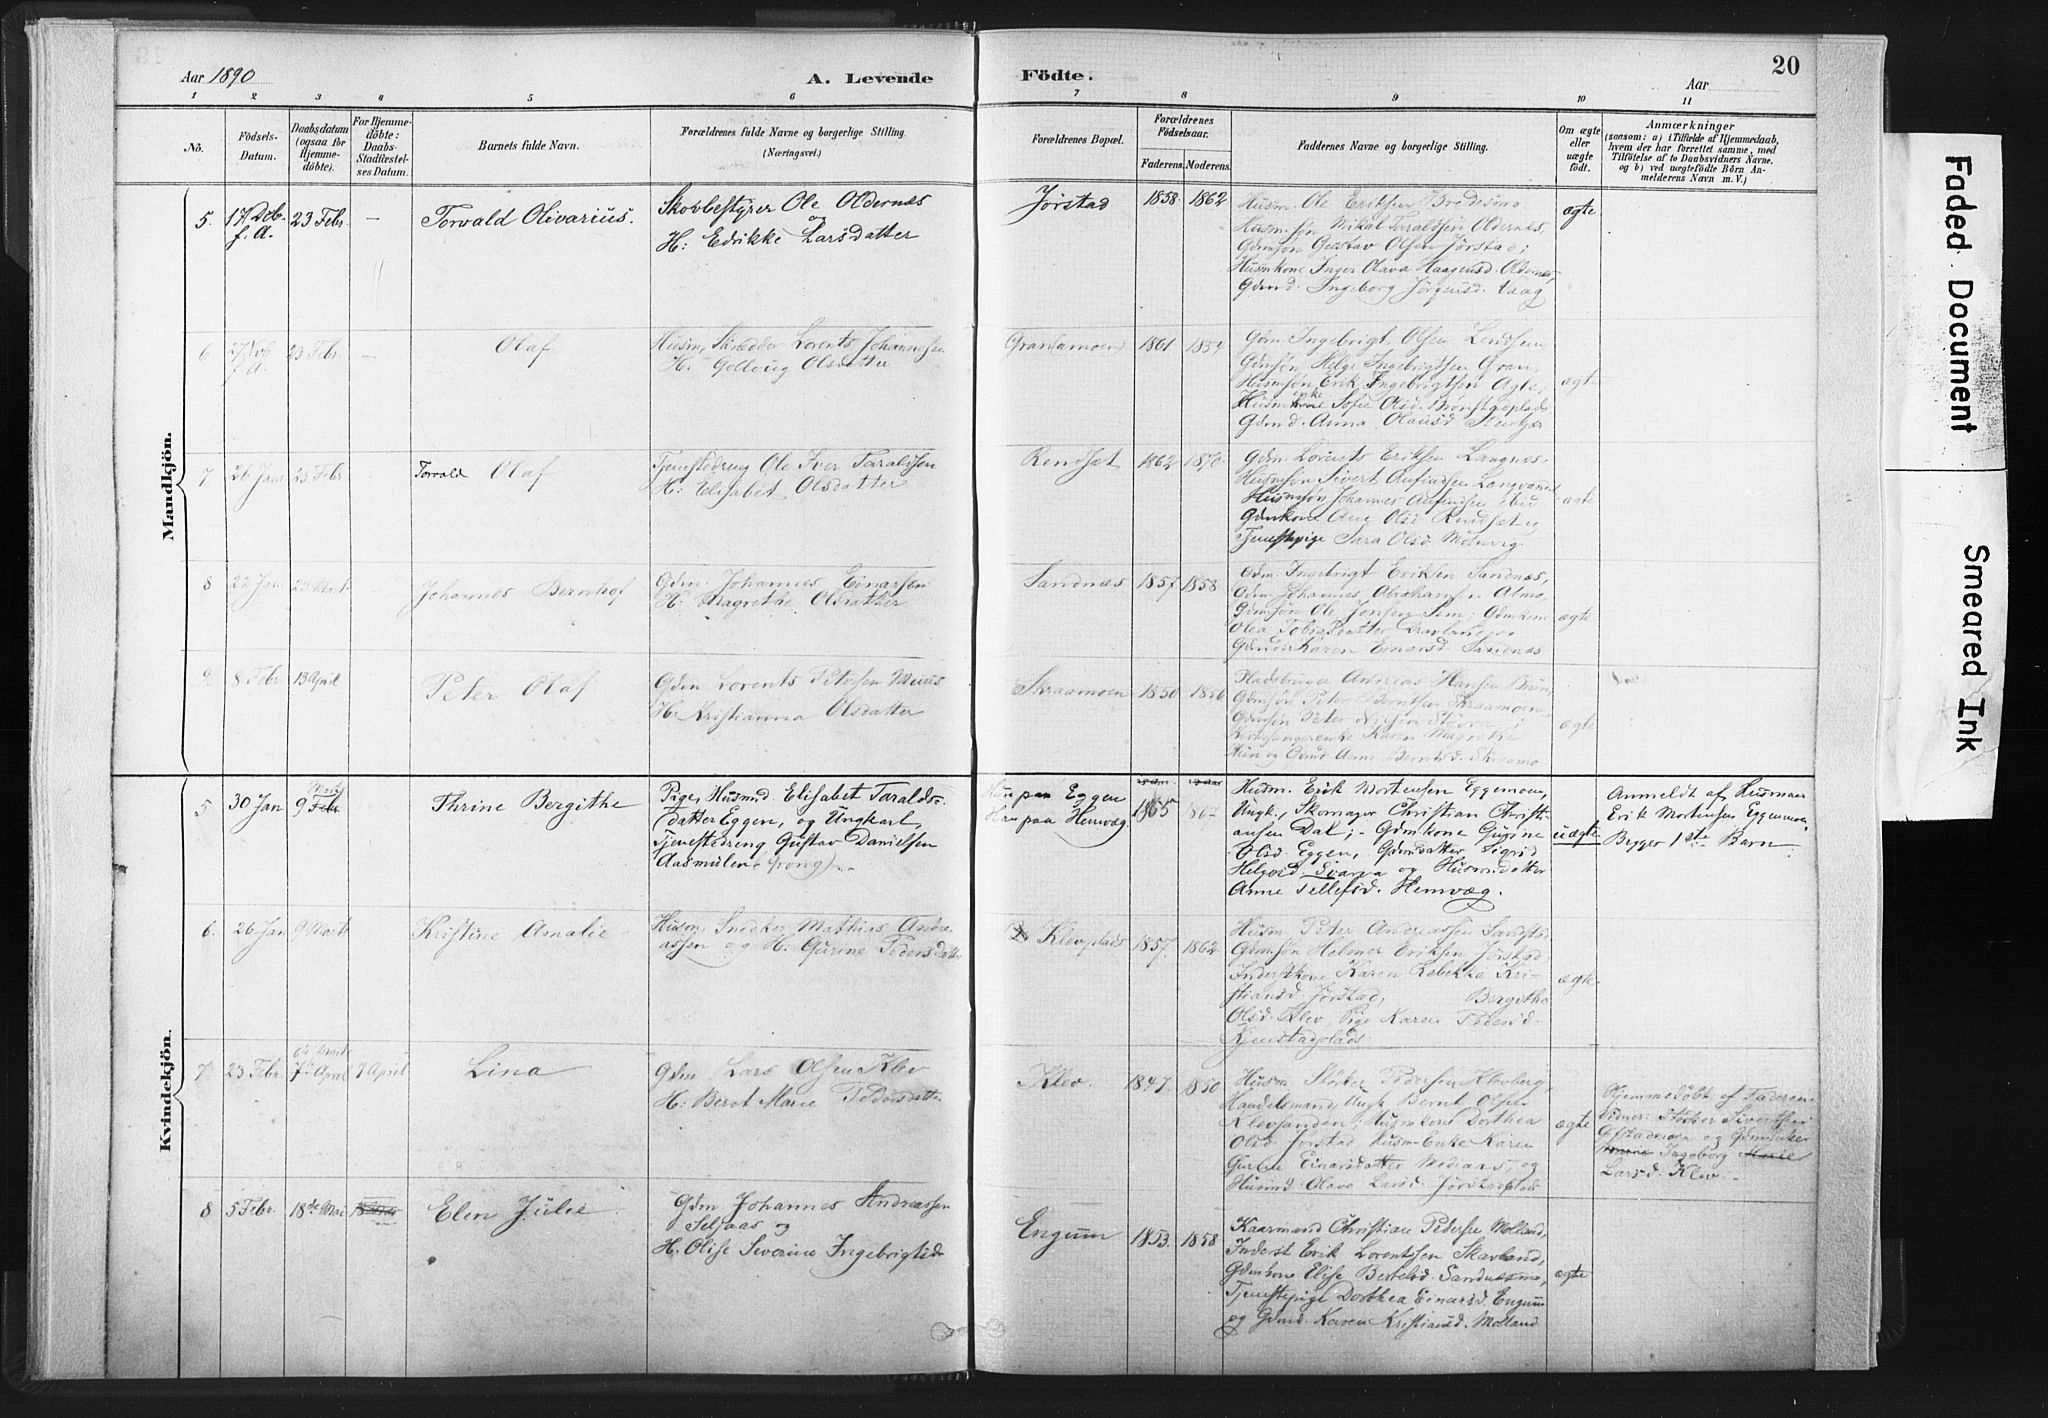 Aar 1890
A. Levende
Födte.
Aar
20
1 2 3 4 5 6 7 8 9 10 11
No.
Födsels-
Datum.
Daabsdatum
(ogsaa for
Hjemme-
döbte).
For Hjemme-
döbte:
Daabs-
Stadfæstel-
ses Datum.
Barnets fulde Navn.
Forældrenes fulde Navne og borgerlige Stilling.
(Næringsvei.)
Forældrenes Bopæl.
Forældrenes
Födselsaar.
Faderens. Moderens.
Faddernes Navne og borgerlige Stilling.
Om ægte
eller
uægte
födt.
Anmærkninger
(saasom: a) i Tilfælde af Hjemmedaab,
hvem der har forrettet samme, med
Tilföielse af to Daabsvidners Navne.
og b) ved uægtefödte Börn An-
melderens Navn m. V.)
Mandkjön.
5. 17 Deb. f. A. 23 Febr. — Torvald Olivarius.
Skovbestyrer Ole Oldernæs
og
H: Edrikke Larsdatter
Jörstad 1858. 1862
Husm. Ole Eriksen Bredesmo
Husm. søn Mikal Taraldsen Oldernæs,
Gdmsøn Gustav Olsen Jörstad;
Husmkone Inger Olava Haagensd. Oldernæs,
Gdmd. Ingeborg Jörgensd. Vaag
ægte
6 27 Nob f. A. 23 Febr. — Olaf
Husm. Skrædder Lorents Johannesen
H: Goldvig Olsdatter
Granamoen 1861 1854
Gdm. Ingebrigt Olsen
Gdmsøn Helge Ingebrigtsen Gran,
Husmsøn Erik Ingebrigtsen Agle,
Husm enke Sofie Olsd.
Gdmd. Anna Olausd
ægte
7 26 Janr 23 Febr Torvald Olaf
Tjenestedreng Ole Iver Taraldsen
H: Elisabet Olsdatter
Rendset 1862 1870
Gdm. Lorents Eriksen Langnes.
Husmsøn Sivert Anfindsen
Husmsøn Johannes Anfindsen ibid
Gdmkone Ane Olsd. Rendset og
Tjenestepige Sara Olsd.
ægte
8 22 Jan. 23 Mart Johannes Bernhof
Gdm. Johannes Einarsen
H: Magrethe Olsdatter
Sandnæs 1857. 1858
Gdm. Ingebrigt Eriksen Sandnæs,
Gdm. Johannes Abrahamsen Almo,
Gdmsøn Ole Jonsen Sem; Gdmkone
Olea Tobiasdatter
Karen Einarsd. Sandnæs
ægte
9. 8 Febr 13 April Peter Olaf
Gdm Lorents Petersen
H: Kristianna Olsdatter
Skraamoen 1850 1856
Pladsbruger Andreas Hansen
Gdmsøn Peter Berntsen Skraamoen,
Gdmsøn Peter
Karen Magrethe
Gdmd Ane Berntsd. Skraamo
ægte
Kvindekjön.
5 30 Jan 9 Marts Febr Thrine Bergithe
Pige, Husmd. Elisabet Taralds-
datter Eggen, og Ungkarl,
Tjenestedreng Gustav Danielsen
Aasmulen (Spong).
Hun paa Eggen
Han paa Hemvæg.
1865 1867
Husm. Erik Mortensen Eggemoen,
Ungk., Skomager Christian Christi-
ansen Dal; - Gdmkone Gurine
Olsd. Eggen, Gdmdatter Sigrid
Helgesd. og Husmdatter
Anne Tellefsd. Hemvæg.
uægte
Anmeldt af Husmaen
Erik Mortensen Eggemoen
Begges 1ste Barn
6. 26 Jan 9 Marts Kristine Amalie
Husm. Snedker Mathias Andre-
assen og H. Gurine Pedersdatter
Klevplads 1857. 1862
Husm. Peter Andreassen
Gdmsøn Helmer Eriksen Jörstad
Inderstkone Karen Rebekka Kri-
stiansd. Jörstad, Bergithe
Olsd. Klev, Pige Karen Pedersd.
Kjenstadplads.
ægte
7. 23 Febr. 7 April 7 April Lina
Gdm Lars Olsen Klev
H: Beret Marie Pedersdatter
Klev. 1847. 1850
Husm. Störker Pedersen Klevberg,
Handelsmand, Ungk Bernt Olsen
Klevsanden; Husmkone Dorthea
Olsd. Jörstad, Husm. Enke Karen
Gurine Einarsdatter og
Husmd. Olava Larsd. Jörstadplads
ægte
Hjemmedöbt af Faderen
Vidner: Störker Sivertsen
og Gdmenke
Ingeborg Marie
Larsd. Klev.
8 5 Febr. 18de Mai Elen Julie
Gdm Johannes Andreassen
Selsaas og
H. Olise Severine Ingebrigtsd
Engum 1853. 1858
Kaarmand Christian Pedersen Molland,
Inderst Erik Lorentsen Skavland,
Gdmkone Elise Bertelsd. Sandnesmo,
Tjenestepige Dorthea Einarsd. Engum
og Gdmd. Karen Kristiansd. Molland
ægte
Faded Document
Smeared Ink